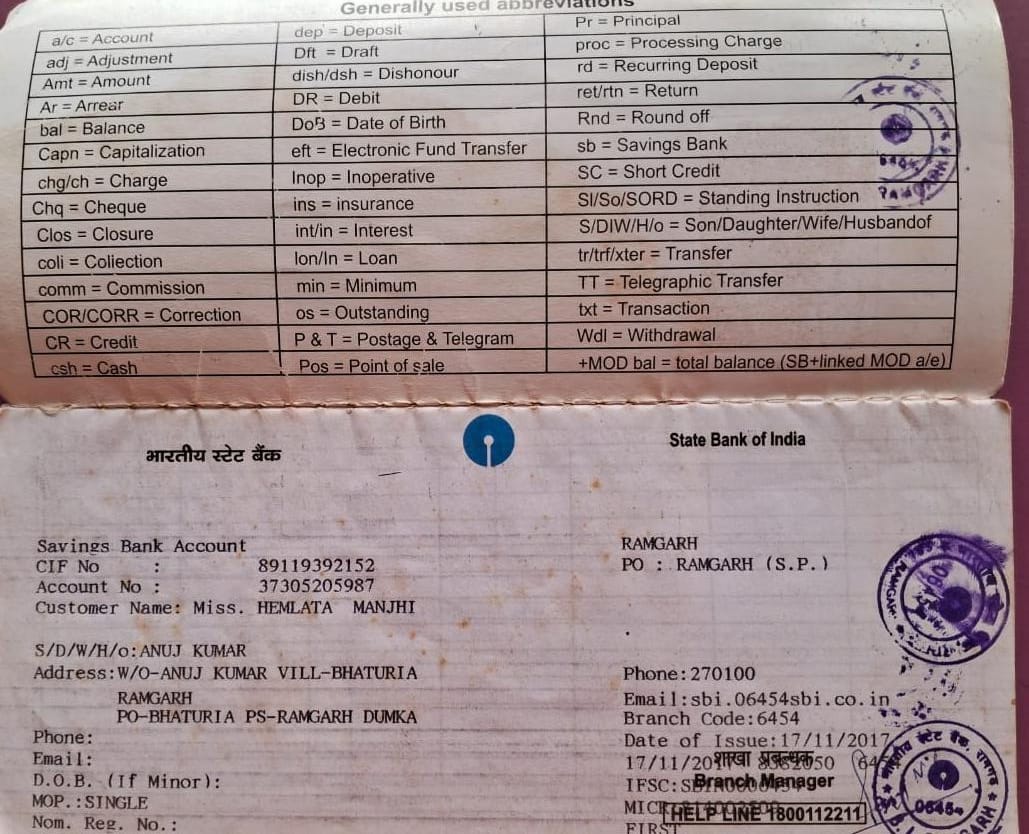 Generally used abbreviations
a/c = Account dep = Deposit Pr = Principal
adj = Adjustment Dft = Draft proc = Processing Charge
Amt = Amount dish/dsh = Dishonour rd = Recurring Deposit
Ar = Arrear DR = Debit ret/rtn = Return
bal = Balance DoB = Date of Birth Rnd = Round off
Capn = Capitalization eft = Electronic Fund Transfer sb = Savings Bank
chg/ch = Charge Inop = Inoperative SC = Short Credit
Chq = Cheque ins = insurance SI/So/SORD = Standing Instruction
Clos = Closure int/in = Interest S/DIW/H/o = Son/Daughter/Wife/Husbandof
coli = Coliection lon/ln = Loan tr/trf/xter = Transfer
comm = Commission min = Minimum TT = Telegraphic Transfer
COR/CORR = Correction os = Outstanding txt = Transaction
CR = Credit P & T = Postage & Telegram Wdl = Withdrawal
csh = Cash Pos = Point of sale +MOD bal = total balance (SB+linked MOD a/e)
भारतीय स्टेट बैंक State Bank of India
Savings Bank Account RAMGARH
CIF No : 89119392152 PO : RAMGARH (S.P.)
Account No : 37305205987
Customer Name: Miss. HEMLATA MANJHI
S/D/W/H/o:ANUJ KUMAR
Address:W/O-ANUJ KUMAR VILL-BHATURIA Phone:270100
RAMGARH Email:sbi.06454sbi.co.in
PO-BHATURIA PS-RAMGARH DUMKA Branch Code:6454
Phone: Date of Issue:17/11/2017
Email: शाखा प्रबन्धक
D.O.B. (If Minor): IFSC: Branch Manager
MOP.:SINGLE HELP LINE 1800112211
Nom. Reg. No.: FIRST
भारतीय स्टेट बैंक, रामगढ़
06454